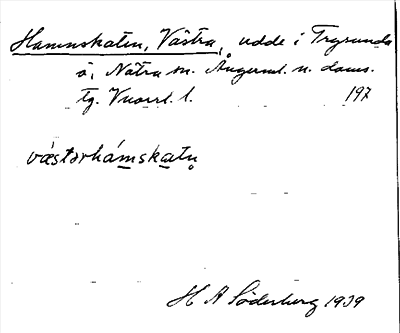 Hamnskaten, Västra, udde i Trysunda
ö, Nätra sn. Ångerml. n. doms.
tg. Vnorrl. l. 197
västərhámskatn̥
H A Söderberg 1939